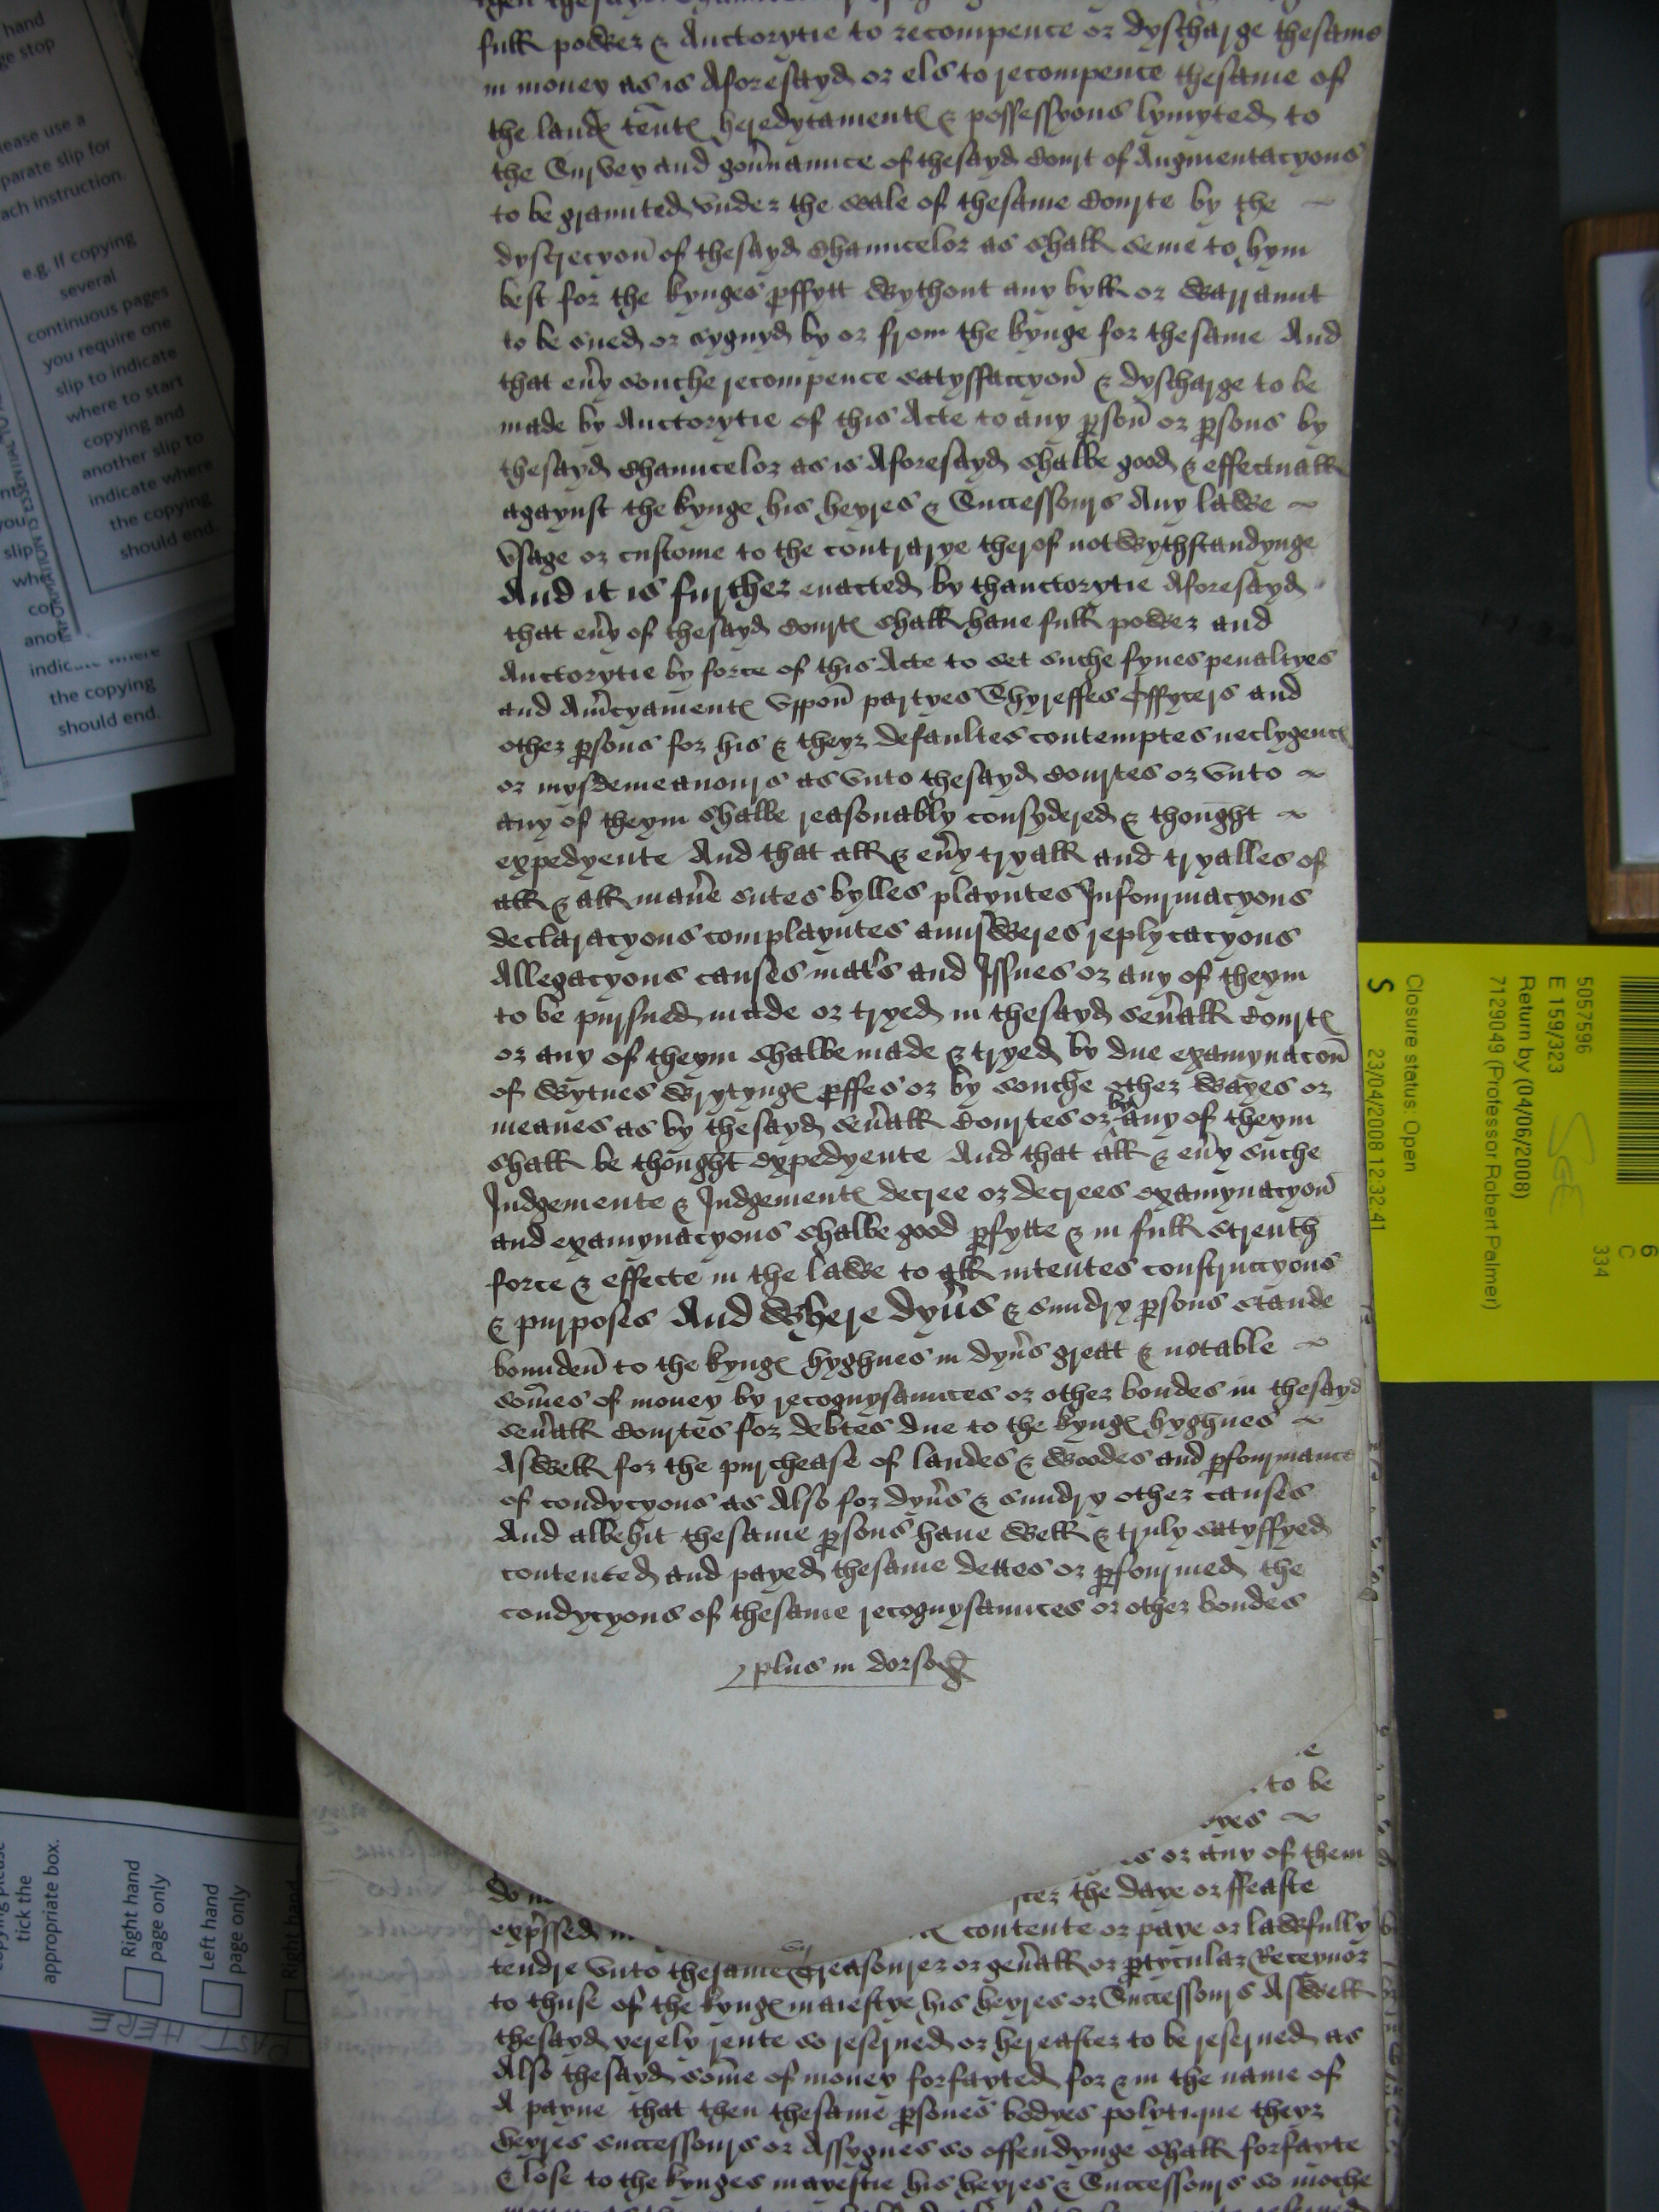 full power & Auctorytie to recompence or dyscharge thesame
in money as is Aforesayd or els to recompence thesame of
the landes tent herdytament & possessyons lymyted to
the Survey and gou'naunce of thesayd Court of Augmentacyons
to be graunted vnder the seale of thesame Courte by the
dyscrecyon of thesayd Chauncelor as shall seme to hym
best for the kynges pffytt wythout any byll or warraunt
to be sued or sygnyd by or from the kynge for thesame And
that eu'y souche recompence satysfaccyon & dyscharge to be
made by Auctorytie of this Acte to any pson or psons by
thesayd Chauncelor as is Aforesayd shalbe good & effectuall
agaynst the kynge his heyres & Successours Any lawe
vsage or custome to the contrarye therof notwythstandynge
And it is further enacted by thauctorytie Aforesayd
that eu'y of thesayd Courtes shall haue full power and
Auctorytie by force of this Acte to set suche fynes penaltyes
and Am'cyamentes vppon partyes Shyreffes Offycers and
other psons for his & theyr defaultes contemptes neclygences
or mysdemeanours as vnto thesayd Courtes or vnto
any of theym shalbe reasonably consydered & thought
expedyente And that all & eu'y tryall and tryalles of
all & all man'e sutes bylles playntes Informacyons
declaracyons complayntes aunsweres replycacyons
Allegacyons causes mat's and Issues or any of theym
to be pursued made or tryed in thesayd seu'all Courtes
or any of theym shalbe made & tryed by due examynacon
of wytnes wrytynges pffes or by souche other wayes or
meanes as by thesayd seu'all Courtes or by any of theym
shall be thought expedyente And that all & eu'y suche
Judgemente & Judgementes decree or decrees examynacyon
and examynacyons shalbe good pfytte & in full strenth
force & effecte in the lawe to all intentes construccyons
& purposes And Where dyu's & sundry psons stande
bounden to the kynges hyghnes in dyu's great & notable
somes of money by recognysaunces or other bondes in thesayd
seu'all Courtes for debtes due to the kynges hyghnes
Aswell for the purchease of landes & woodes and pfourmance
of condycyons as Also for dyu's & sundry other causes
And albehit thesame psons haue well & truly satysffyed
contented and payed thesame dettes or pfourmed the
condycyons of thesame recognysaunces or other bondes
plus in dorso
to be
or any of them
the daye or ffeaste
exp'ssed
contente or paye or lawfully
tendre vnto thesame Treasourer or gen'all or ptyculer Receyuor
to thuse of the kynges maiestye his heyres or Successours Aswell
thesayd yerely rente so reserued or hereafter to be reserued as
Also thesayd some of money forfayted for & in the name of
A payne that then thesame psones bodyes polytique theyr
heyres successours or Assygnes so offendynge shall forfayte
& lose to the kynges mayestie his heyres & Successours so moche
hand
ge stop
lease use a
parate slip for
ach instruction.
e.g. If copying
several
continuous pages
you require one
slip to indicate
where to start
copying and
another slip to
indicate where
the copying
should end.
indicate where
the copying
should end.
tick the
appropriate box.
Right hand
page only
Left hand
page only
Right hand
PAST HERE
5057596
E 159/323
Return by (04/06/2008)
7129049 (Professor Robert Palmer)
Closure status: Open
S 23/04/2008 12:32:41
6
C
334